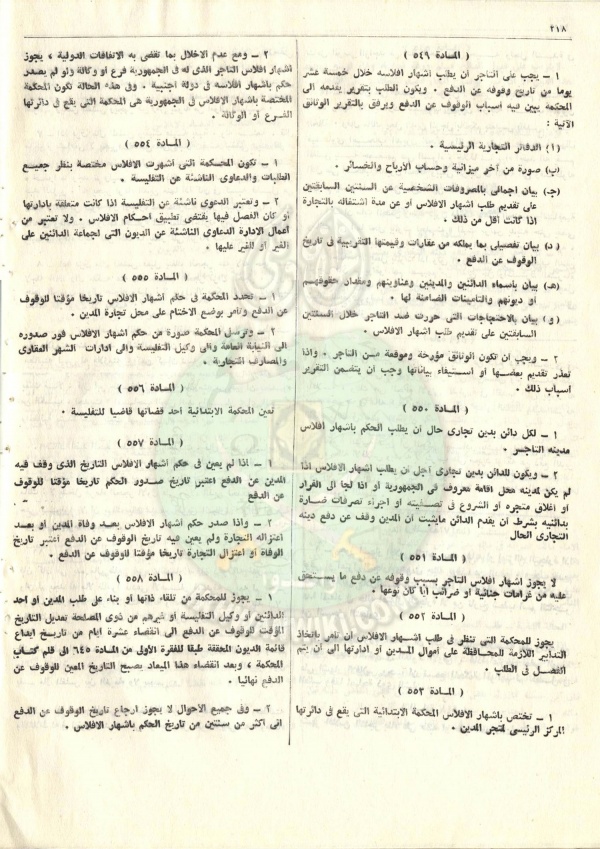 ٢١٨
( المادة ٥٤٩ )
١ – يجب على التاجر أن يطلب اشهار افلاسه خلال خمسة عشر
يوما من تاريخ وقوفه عن الدفع . ويكون الطلب بتقرير يقدمه الى
المحكمة يبين فيه أسباب الوقوف عن الدفع ويرفق بالتقرير الوثائق
الآتية :
(أ) الدفاتر التجارية الرئيسية .
(ب) صورة من آخر ميزانية وحساب الأرباح والخسائر .
(جـ) بيان اجمالى بالمصروفات الشخصية عن السنتين السابقتين
على تقديم طلب اشهار الافلاس أو عن مدة اشتغاله بالتجارة
اذا كانت أقل من ذلك .
(د) بيان تفصيلى بما يملكه من عقارات وقيمتها التقريبية فى تاريخ
الوقوف عن الدفع .
(هـ) بيان بأسماء الدائنين والمدينين وعناوينهم ومقدار حقوقهم
أو ديونهم والتأمينات الضامنة لها .
(و) بيان بالاحتجاجات التى حررت ضد التاجر خلال السنتين
السابقتين على تقديم طلب اشهار الافلاس .
٢ – ويجب أن تكون الوثائق مؤرخة وموقعة من التاجر . واذا
تعذر تقديم بعضها أو استيفاء بياناتها وجب أن يتضمن التقرير
أسباب ذلك .
( المادة ٥٥٠ )
١ – لكل دائن بدين تجارى حال أن يطلب الحكم باشهار افلاس
مدينه التاجر .
٢ – ويكون للدائن بدين تجارى آجل أن يطلب اشهار الافلاس اذا
لم يكن لمدينه محل اقامة معروف فى الجمهورية أو اذا لجأ الى الفرار
أو اغلاق متجره أو الشروع فى تصفيته أو اجراء تصرفات ضارة
بدائنيه بشرط أن يقدم الدائن مايثبت أن المدين وقف عن دفع دينه
التجارى الحال
( المادة ٥٥١ )
لا يجوز اشهار افلاس التاجر بسبب وقوفه عن دفع ما يستحق
عليه من غرامات جنائية أو ضرائب أيا كان نوعها .
( المادة ٥٥٢ )
يجوز للمحكمة التى تنظر فى طلب اشهار الافلاس أن تأمر باتخاذ
التدابير اللازمة للمحافظة على أموال المدين أو ادارتها الى أن يتم
الفصل فى الطلب .
( المادة ٥٥٣ )
١ – تختص باشهار الافلاس المحكمة الابتدائية التى يقع فى دائرتها
المركز الرئيسى لمتجر المدين .
٢ – ومع عدم الاخلال بما تقضى به الاتفاقات الدولية ، يجوز
اشهار افلاس التاجر الذى له فى الجمهورية فرع أو وكالة ولو لم يصدر
حكم باشهار افلاسه فى دولة أجنبية . وفى هذه الحالة تكون المحكمة
المختصة باشهار الافلاس فى الجمهورية هى المحكمة التى يقع فى دائرتها
الفرع أو الوكالة .
( المادة ٥٥٤ )
١ – تكون المحكمة التى أشهرت الافلاس مختصة بنظر جميع
الطلبات والدعاوى الناشئة عن التفليسة .
٢ – وتعتبر الدعوى ناشئة عن التفليسة اذا كانت متعلقة بادارتها
أو كان الفصل فيها يقتضى تطبيق أحكام الافلاس . ولا تعتبر من
أعمال الادارة الدعاوى الناشئة عن الديون التى لجماعة الدائنين على
الغير أو الغير عليها .
( المادة ٥٥٥ )
١ – تحدد المحكمة فى حكم اشهار الافلاس تاريخا مؤقتا للوقوف
عن الدفع وتأمر بوضع الاختام على محل تجارة المدين .
٢ – وترسل المحكمة صورة من حكم اشهار الافلاس فور صدوره
الى النيابة العامة والى وكيل التفليسة والى ادارات الشهر العقارى
والمصارف التجارية .
( المادة ٥٥٦ )
تعين المحكمة الابتدائية أحد قضاتها قاضيا للتفليسة .
( المادة ٥٥٧ )
١ – اذا لم يعين فى حكم اشهار الافلاس التاريخ الذى وقف فيه
المدين عن الدفع اعتبر تاريخ صدور الحكم تاريخا مؤقتا للوقوف
عن الدفع
٢ – واذا صدر حكم اشهار الافلاس بعد وفاة المدين أو بعد
اعتزاله التجارة ولم يعين فيه تاريخ الوقوف عن الدفع اعتبر تاريخ
الوفاة أو اعتزال التجارة تاريخا مؤقتا للوقوف عن الدفع .
( المادة ٥٥٨ )
١ – يجوز للمحكمة من تلقاء ذاتها أو بناء على طلب المدين أو أحد
الدائنين أو وكيل التفليسة أو غيرهم من ذوى المصلحة تعديل التاريخ
المؤقت للوقوف عن الدفع الى انقضاء عشرة أيام من تاريخ ايداع
قائمة الديون المحققة طبقا للفقرة الأولى من المادة ٦٤٥ الى قلم كتاب
المحكمة ، وبعد انقضاء هذا الميعاد يصبح التاريخ المعين للوقوف عن
الدفع نهائيا .
٢ – وفى جميع الأحوال لا يجوز ارجاع تاريخ الوقوف عن الدفع
الى أكثر من سنتين من تاريخ الحكم باشهار الافلاس .